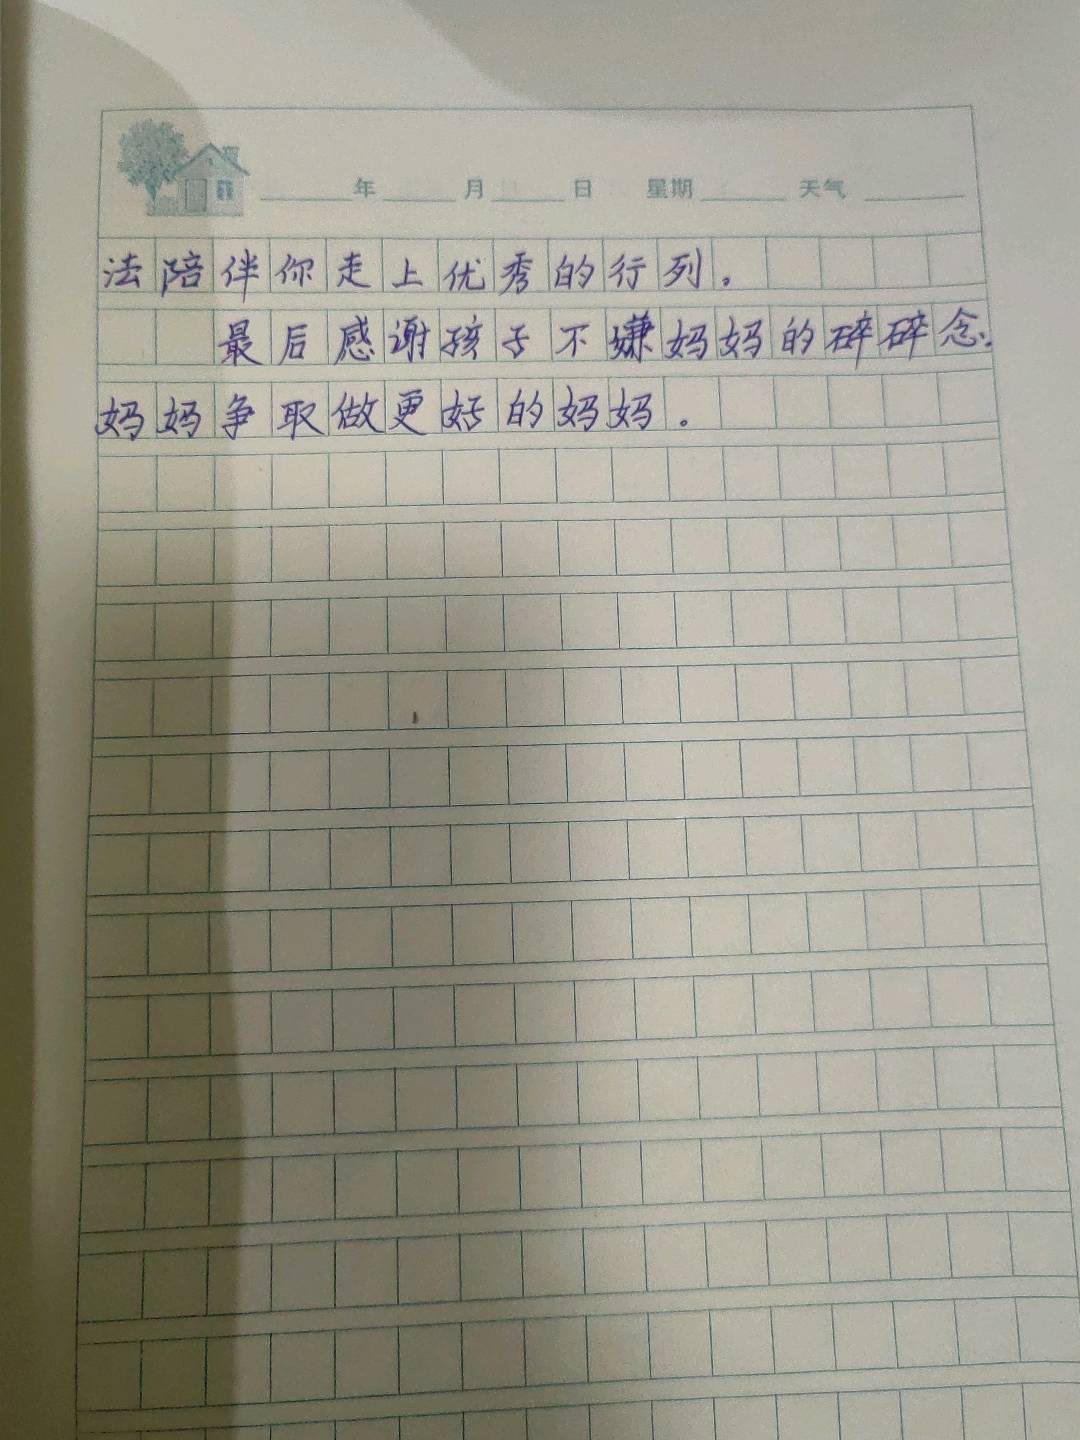 年 月 日 星期 天气
法陪伴你走上优秀的行列。
最后感谢孩子不嫌妈妈的碎碎念;
妈妈争取做更好的妈妈。